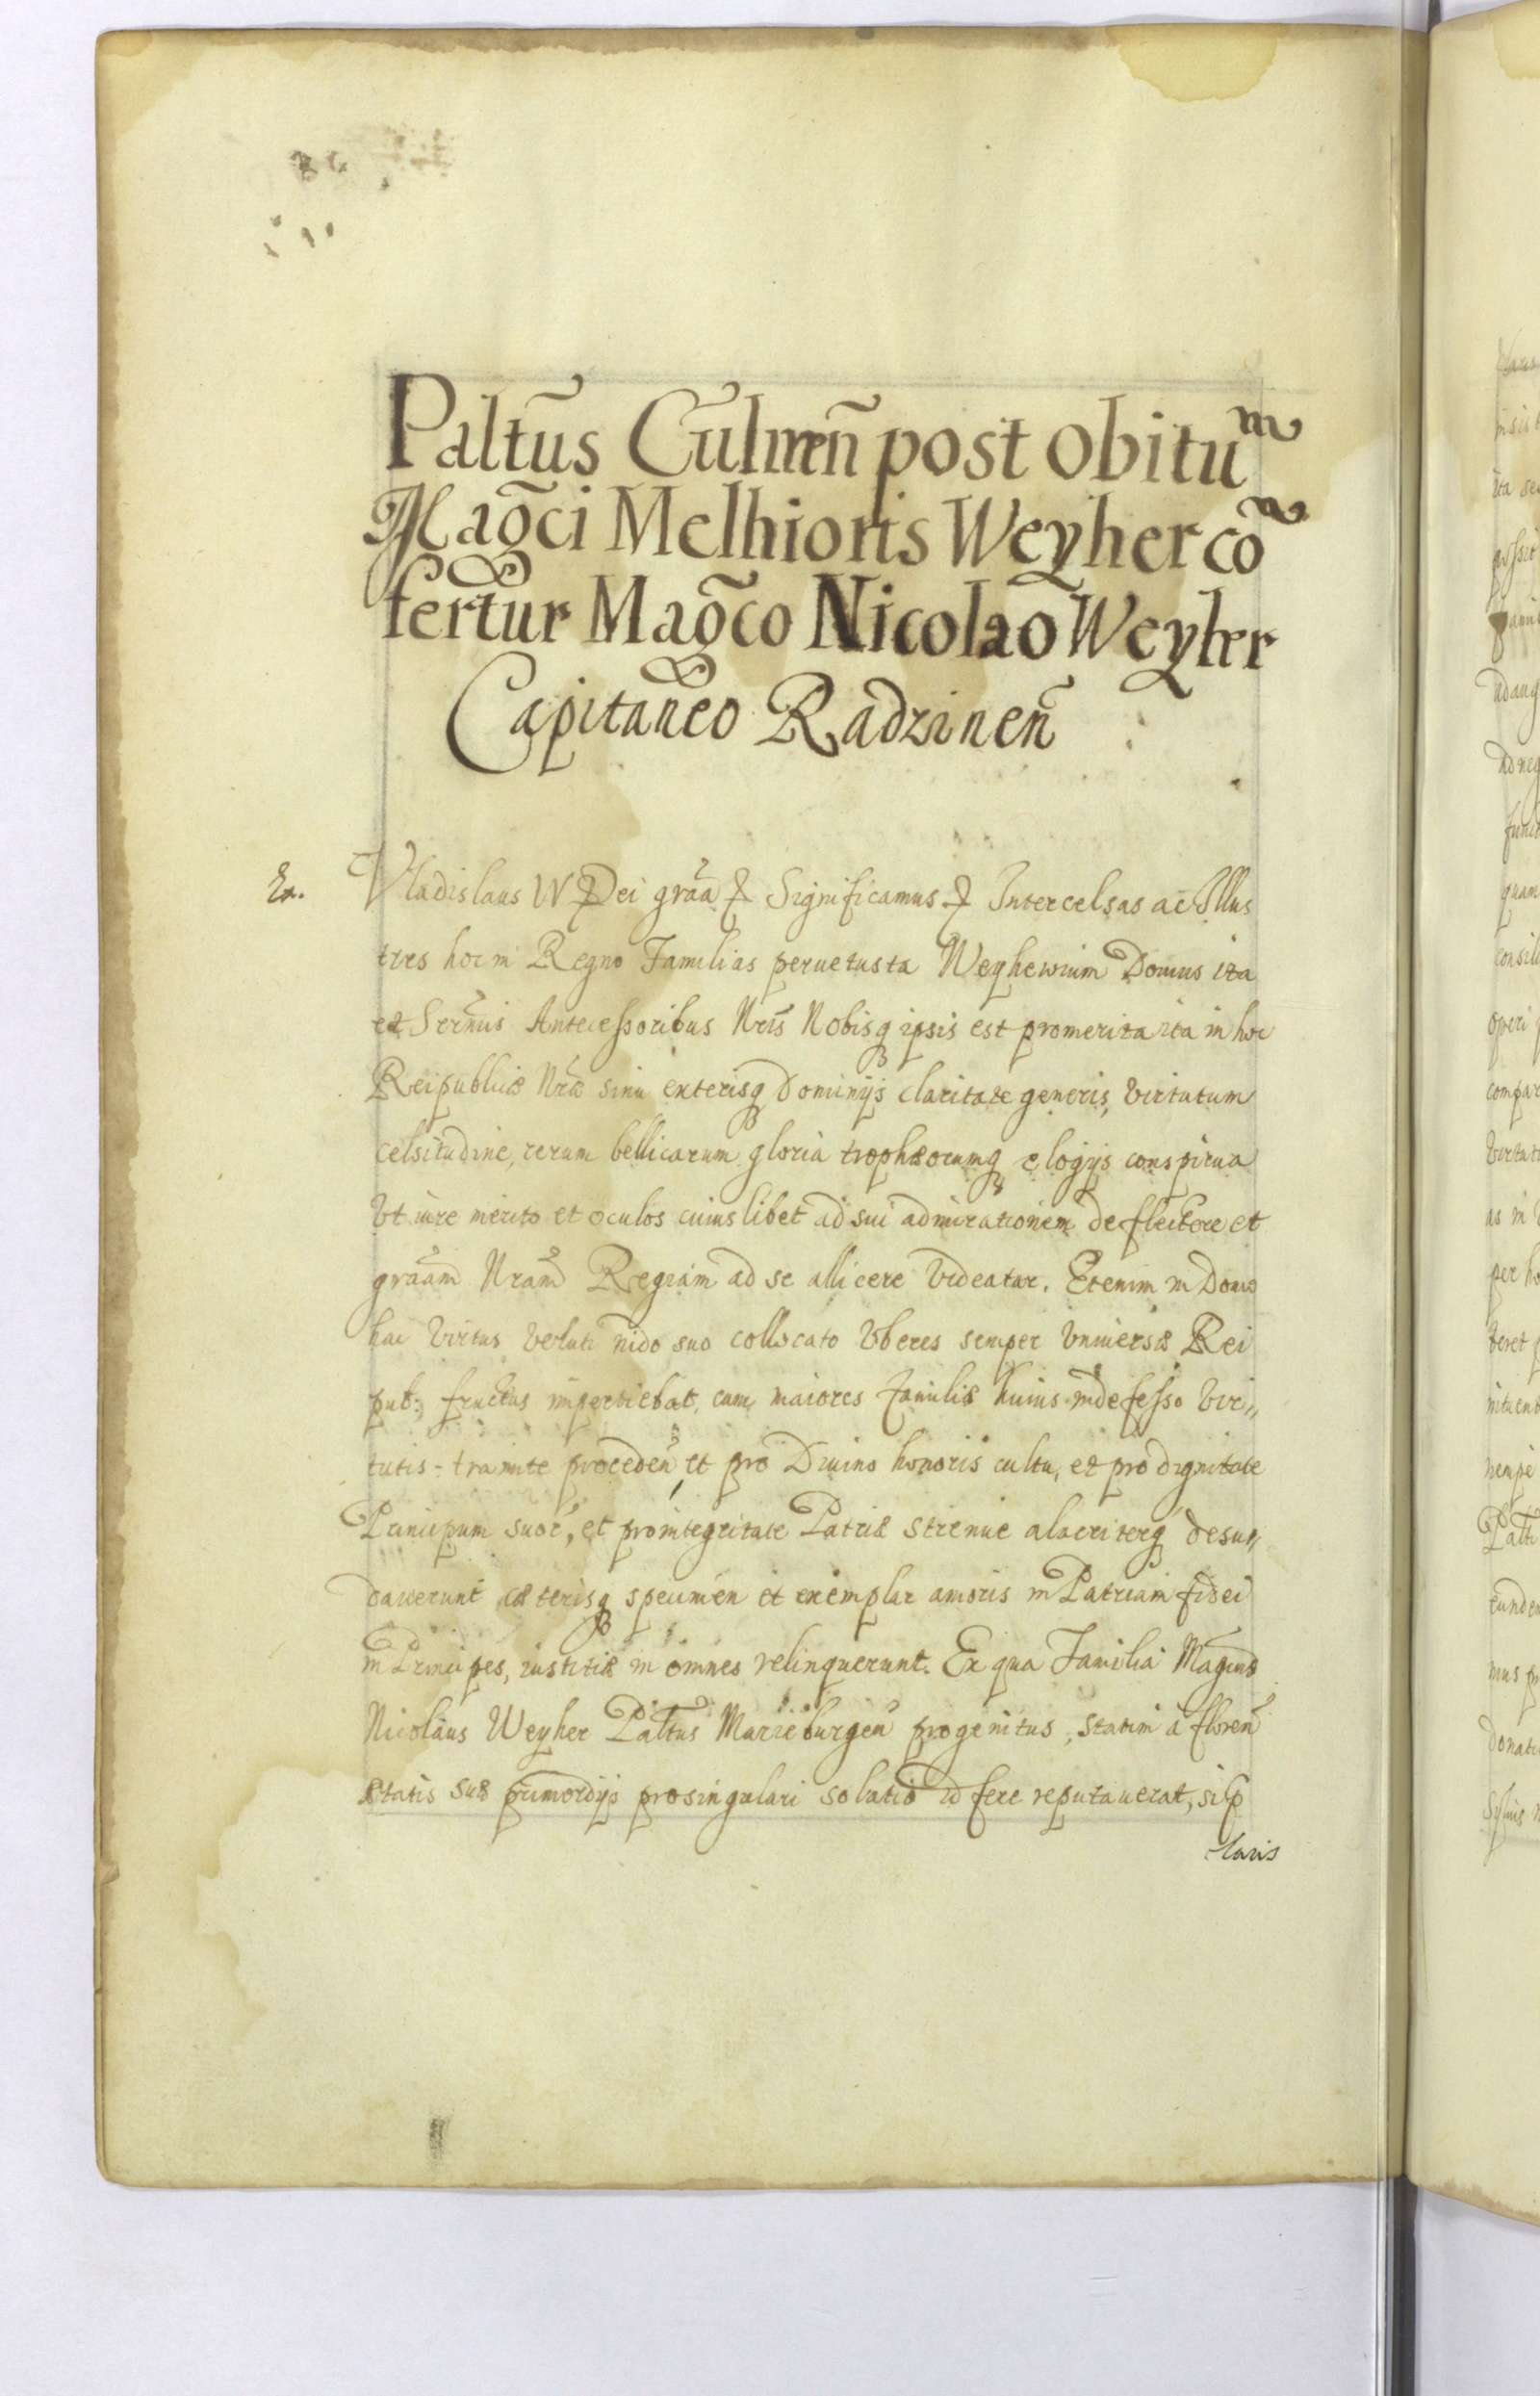 Paltũs Culmen̄ post obitu^m
Magc̃i Melhioris Weyher co^n
fertur Magc̃o Nicolao Weyher
Capitaneo Radzinen̄
Ex. Vladislaus IV Dei grãa & Significamus & Inter celsas ac Illus
tres hoc in Regno Familias peruetusta Weyherorum Domus ita
et Serm̃is Antecessoribus Nrĩs Nobisq ipsis est promerita ita in hoc
Reipublicæ Nræ̃ sinu exterisq Dominijs claritate generis, Virtutum
celsitudine, rerum bellicarum gloria trophæorumq elogijs conspicua
Vt iure merito et oculos cuiuslibet ad sui admirationem deflectere et
grãam Nrãm Regiam ad se allicere Videatur. Etenim in Domo
hac Virtus Veluti nido suo collocato Vberes semper Vniversæ Rei
pub: fructus impertiebat, cum maiores Familiæ huius indefesso Vir„
tutis - tramite proceden̄, et pro Diuino honoris cultu, et pro dignitate
Principum suor̃, et pro integritate Patriæ strenue alacriterq desu„
dauerunt cæterisq specimen et exemplar amoris in Patriam fidei
in Principes, iustitiæ in omnes relinquerunt. Ex qua Familia Magcus
Nicolaus Weyher Paltus Marieburgen̄ progenitus, statim a floren̄
ætatis suæ primordijs pro singulari solatio id fere reputauerat, si p
claris